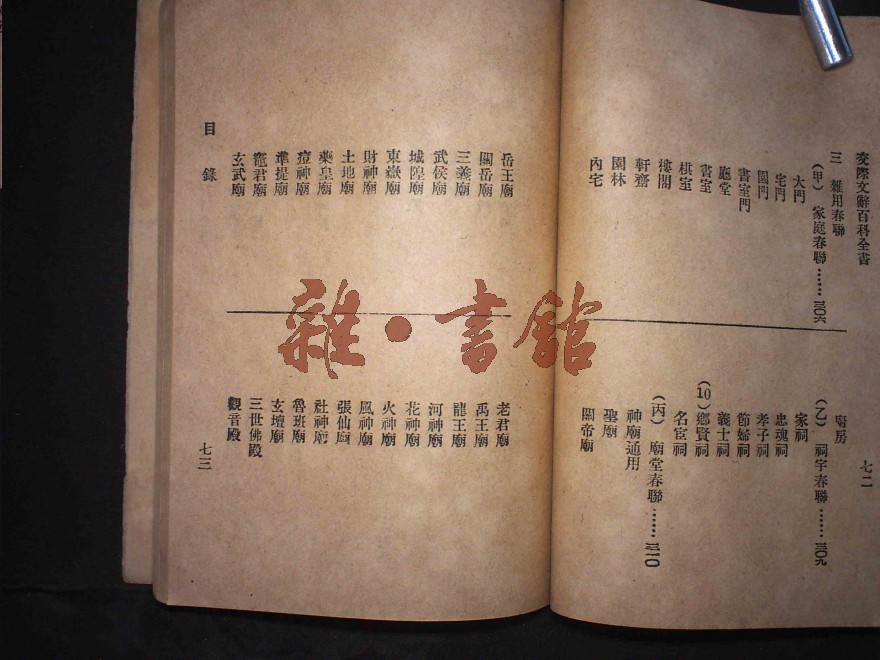 交際文辭百科全書
三 雜用春聯
(甲) 家庭春聯……三〇六
大門
宅門
園門
書室門
廳堂
書室
棋室
樓閣
軒齋
園林
內宅
廚房
(乙) 祠宇春聯……三〇九
家祠
忠魂祠
孝子祠
節婦祠
義士祠
(10)鄉賢祠
名宦祠
(丙) 廟堂春聯……三一〇
神廟通用
聖廟
關帝廟
七二
岳王廟
關岳廟
三義廟
武侯廟
城隍廟
東嶽廟
財神廟
土地廟
藥皇廟
痘神廟
準提廟
竈君廟
玄武廟
目錄
老君廟
禹王廟
龍王廟
河神廟
花神廟
火神廟
風神廟
張仙廟
社神廟
魯班廟
玄壇廟
三世佛殿
觀音殿
七三
雜·書館